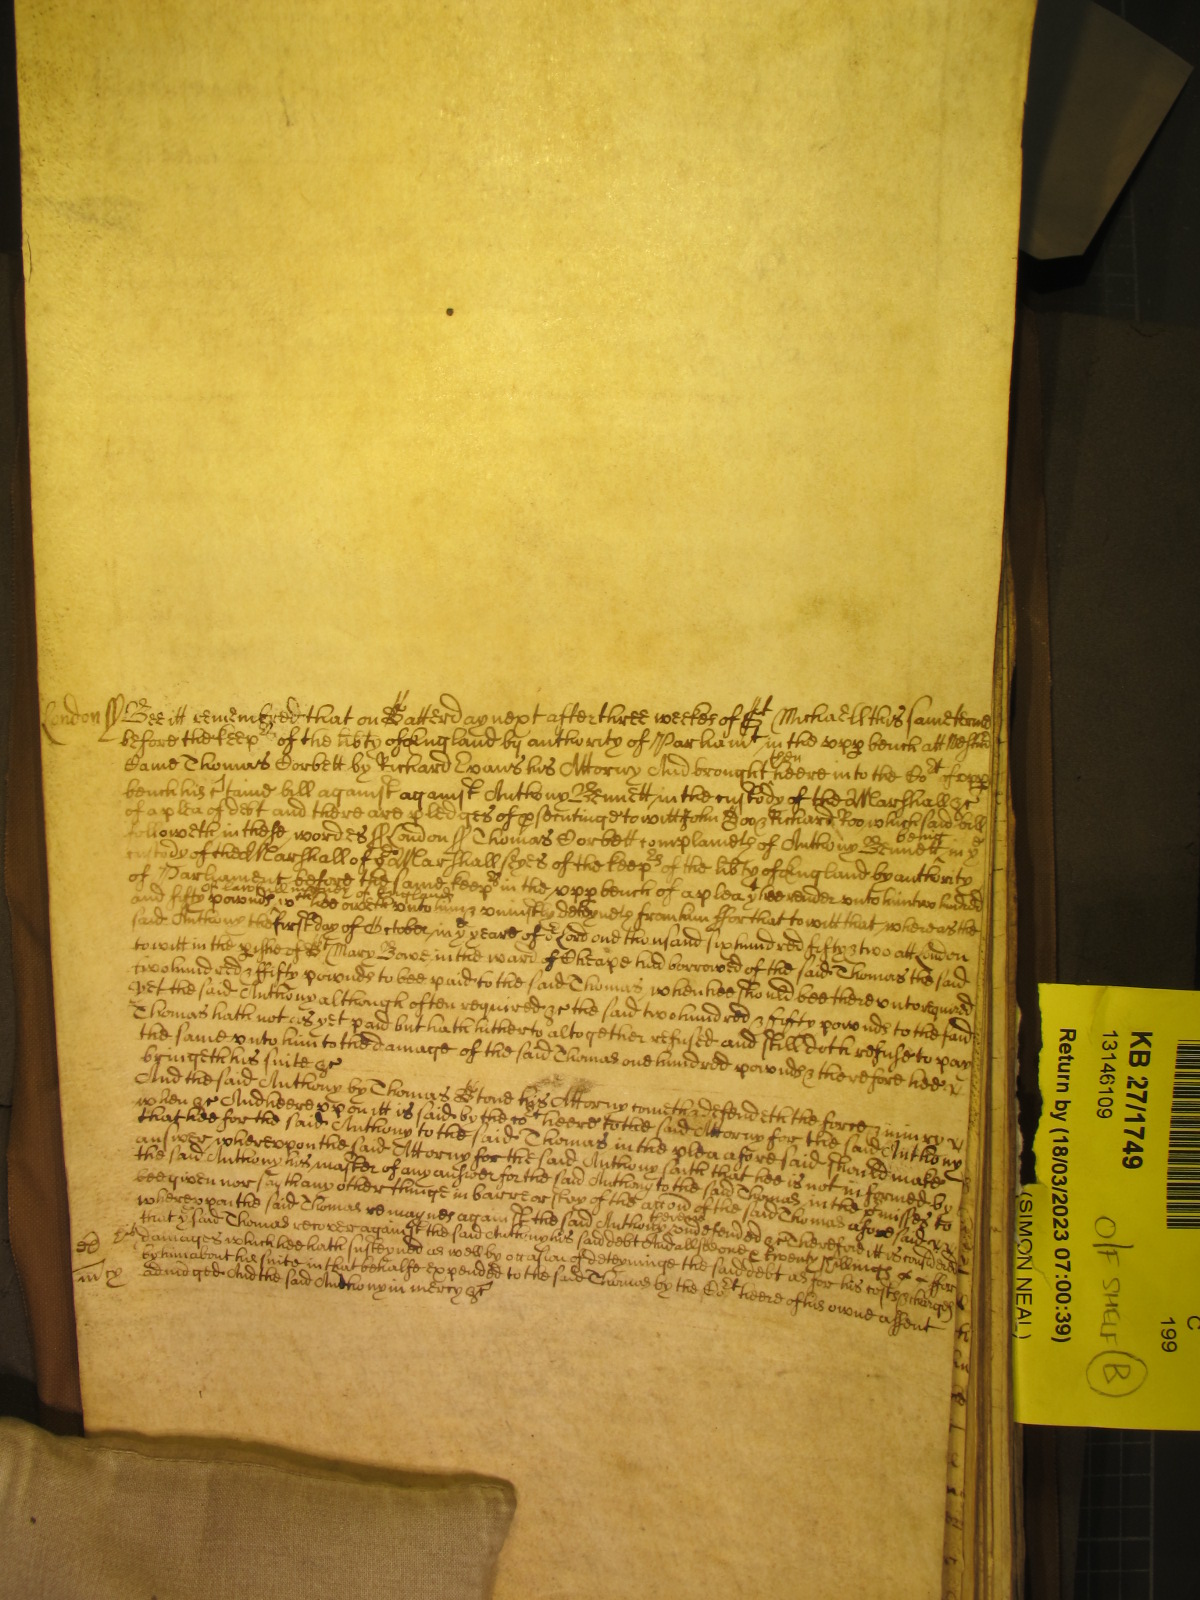 London ss Bee itt remembred that on Satterday next after three weekes of St Michaell this same terme
before the keeprs of the libty of England by authority of Parliamt in the vpp bench att Westmr
Came Thomas Corbett by Richard Evans his Attorny And brought then heere into the Cort of vpp
bench his certaine bill against against Anthony Bennett in the custody of the Marshall &c
of a plea of debt and there are pledges of psecutinge to witt John Doo & Richard Roo which said bill
followeth in these wordes ss London ss Thomas Corbett complaineth of Anthony Bennett being in ye
custody of the Marshall of ye Marshallseyes of the keeprs of the libty of England by authority
of Parliament before the same keeprs in the vpp bench of a plea yt hee render vnto him two hundred
and fifty pownds of lawfull money of England wch hee oweth vnto him & vniustly deteyneth from him ffor that to witt that whereas the
said Anthony the first day of October in ye yeare of or Lord one thousand six hundred fifty & two att London
to witt in the pishe of St Mary Bowe in the ward of Cheape had borrowed of the said Thomas the said
two hundred & ffifty pownds to bee paid to the said Thomas when hee should bee therevnto required
Yet the said Anthony although often required &c the said two hundred & fifty pownds to the said
Thomas hath not as yet paid but hath hitherto altogether refused and still doth refuse to pay
the same vnto him to the damage of the said Thomas one hundred pownds & therefore hee
bringeth his suite &c
And the said Anthony by Thomas Stone his Attorny cometh & defendeth the force & iniury
when &c And heere vpon itt is said by the Cort heere to the said Attorny for the said Anthony
that hee for the said Anthony to the said Thomas in the plea aforesaid should make
answer wherevpon the said Attorny for the said Anthony saith that hee is not informed by
the said Anthony his master of any answer for the said Anthony to the said Thomas in the pmisses to
bee given nor sayth any other thinge in barre or stay of the accon of the said Thomas aforesaid
wherevpon the said Thomas remaynes against the said Anthony therein vndefended &c Therefore itt is considered
that ye said Thomas recover against the said Anthony his said debt And allsoe one & twenty shillings ffor
damages which hee hath susteyned as well by occasion of deteyninge the said debt as for his costs & charges
by him about his suite in that behalfe expended to the said Thomas by the Cort heere of his owne assent
adiudged And the said Anthony in mercy &c
KB 27/1749
13146109
Return by (18/03/2023 07:00:39)
(SIMON NEAL)
O/F SHELF B
C
199